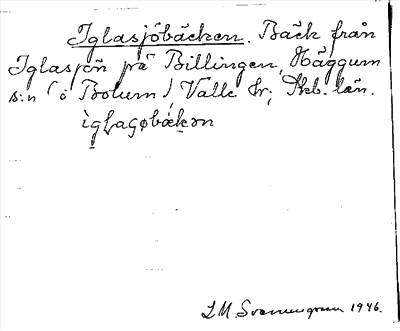 Iglasjöbäcken. Bäck från
Iglasjön på Billingen, Häggum
s:n (ö Bolum) Valle hr; Skb. län.
ìglaçøbækən
L M Svennungsson 1946.